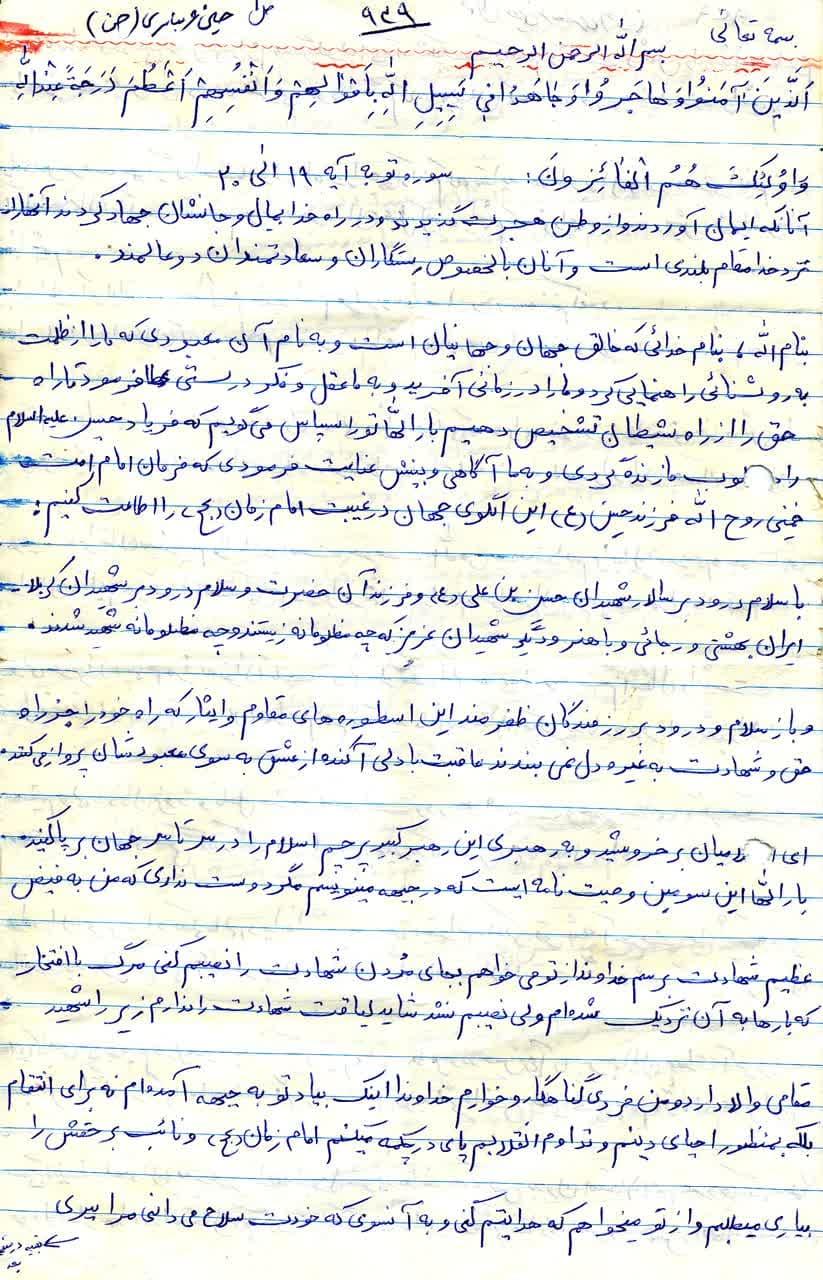 بسمه تعالی
۹۳۹
بسم الله الرحمن الرحیم
اَلَّذینَ آمَنُوا وَ هاجَروُا وَ جاهَدُوا فی سَبیلِ اللهِ بِاَموْالِهِمْ وَ اَنْفُسِهِمْ اَعْظَمُ دَرَجَةً عِنْدَاللهِ
وَ اوُلئِکَ هُمُ الْفائِزونَ: سوره توبه آیه ۱۹ الی ۲۰
آنانکه ایمان آوردند و از وطن هجرت گزیدند و در راه خدا بمال و جانشان جهاد کردند آنها را
نزد خدا مقام بلندی است و آنان بالخصوص رستگاران و سعادتمندان دو عالمند.
بنام الله، بنام خدائی که خالق جهان و جهانیان است و به نام آن معبودی که ما را از ظلمت
به روشنائی راهنمایی کرد و ما را در زمانی آفرید و به ما عقل و فکر درستی عطا فرمود تا راه
حق را از راه شیطان تشخیص دهیم بار الها تو را سپاس می گویم که فریاد حسین علیه السلام
را در ما زنده کردی و به ما آگاهی و بینش عنایت فرمودی که فرمان امام امت
خمینی روح الله فرزند حسین (ع) این الگوی جهان در غیبت امام زمان (عج) را اطاعت کنیم:
با سلام درود بر سالار شهیدان حسین بن علی (ع) و فرزند آن حضرت و سلام درود بر شهیدان کربلا
ایران بهشتی و رجائی و باهنر و دیگر شهیدان عزیز که چه مظلومانه زیستند و چه مظلومانه شهید شدند.
و باز سلام و درود بر رزمندگان ظفرمند این اسطوره های مقاوم و ایثار که راه خود را جز راه
حق و شهادت به غیره دل نمی بندند عاقبت با دلی آکنده از عشق به سوی معبودشان پرواز می کنند.
ای میان برخروشید و به رهبری این رهبر کبیر پرچم اسلام را در سرتاسر جهان برپا کنید.
بار الها این سومین وصیت نامه ایست که در جبهه مینویسم مگر دوست نداری که من به فیض
عظیم شهادت برسم خداوندا از تو می خواهم بجای مُردن شهادت را نصیبم کنی مرگ با افتخار
که بارها به آن نزدیک شده ام ولی نصیبم نشد شاید لیاقت شهادت را ندارم زیرا شهید
مقامی والا دارد و من فردی گناهکار و خوارم خداوندا اینک بیاد تو به جبهه آمده ام نه برای انتقام
بلکه بمنظور احیای دینم و تداوم انقلابم پای در چکمه میکنم امام زمان (عج) و نائب بر حقش را
بیاری میطلبم و از تو میخواهم که هدایتم کنی و به آنسوی که خودت سلاح می دانی مرا ببری
بقیه در صفحه
بعد